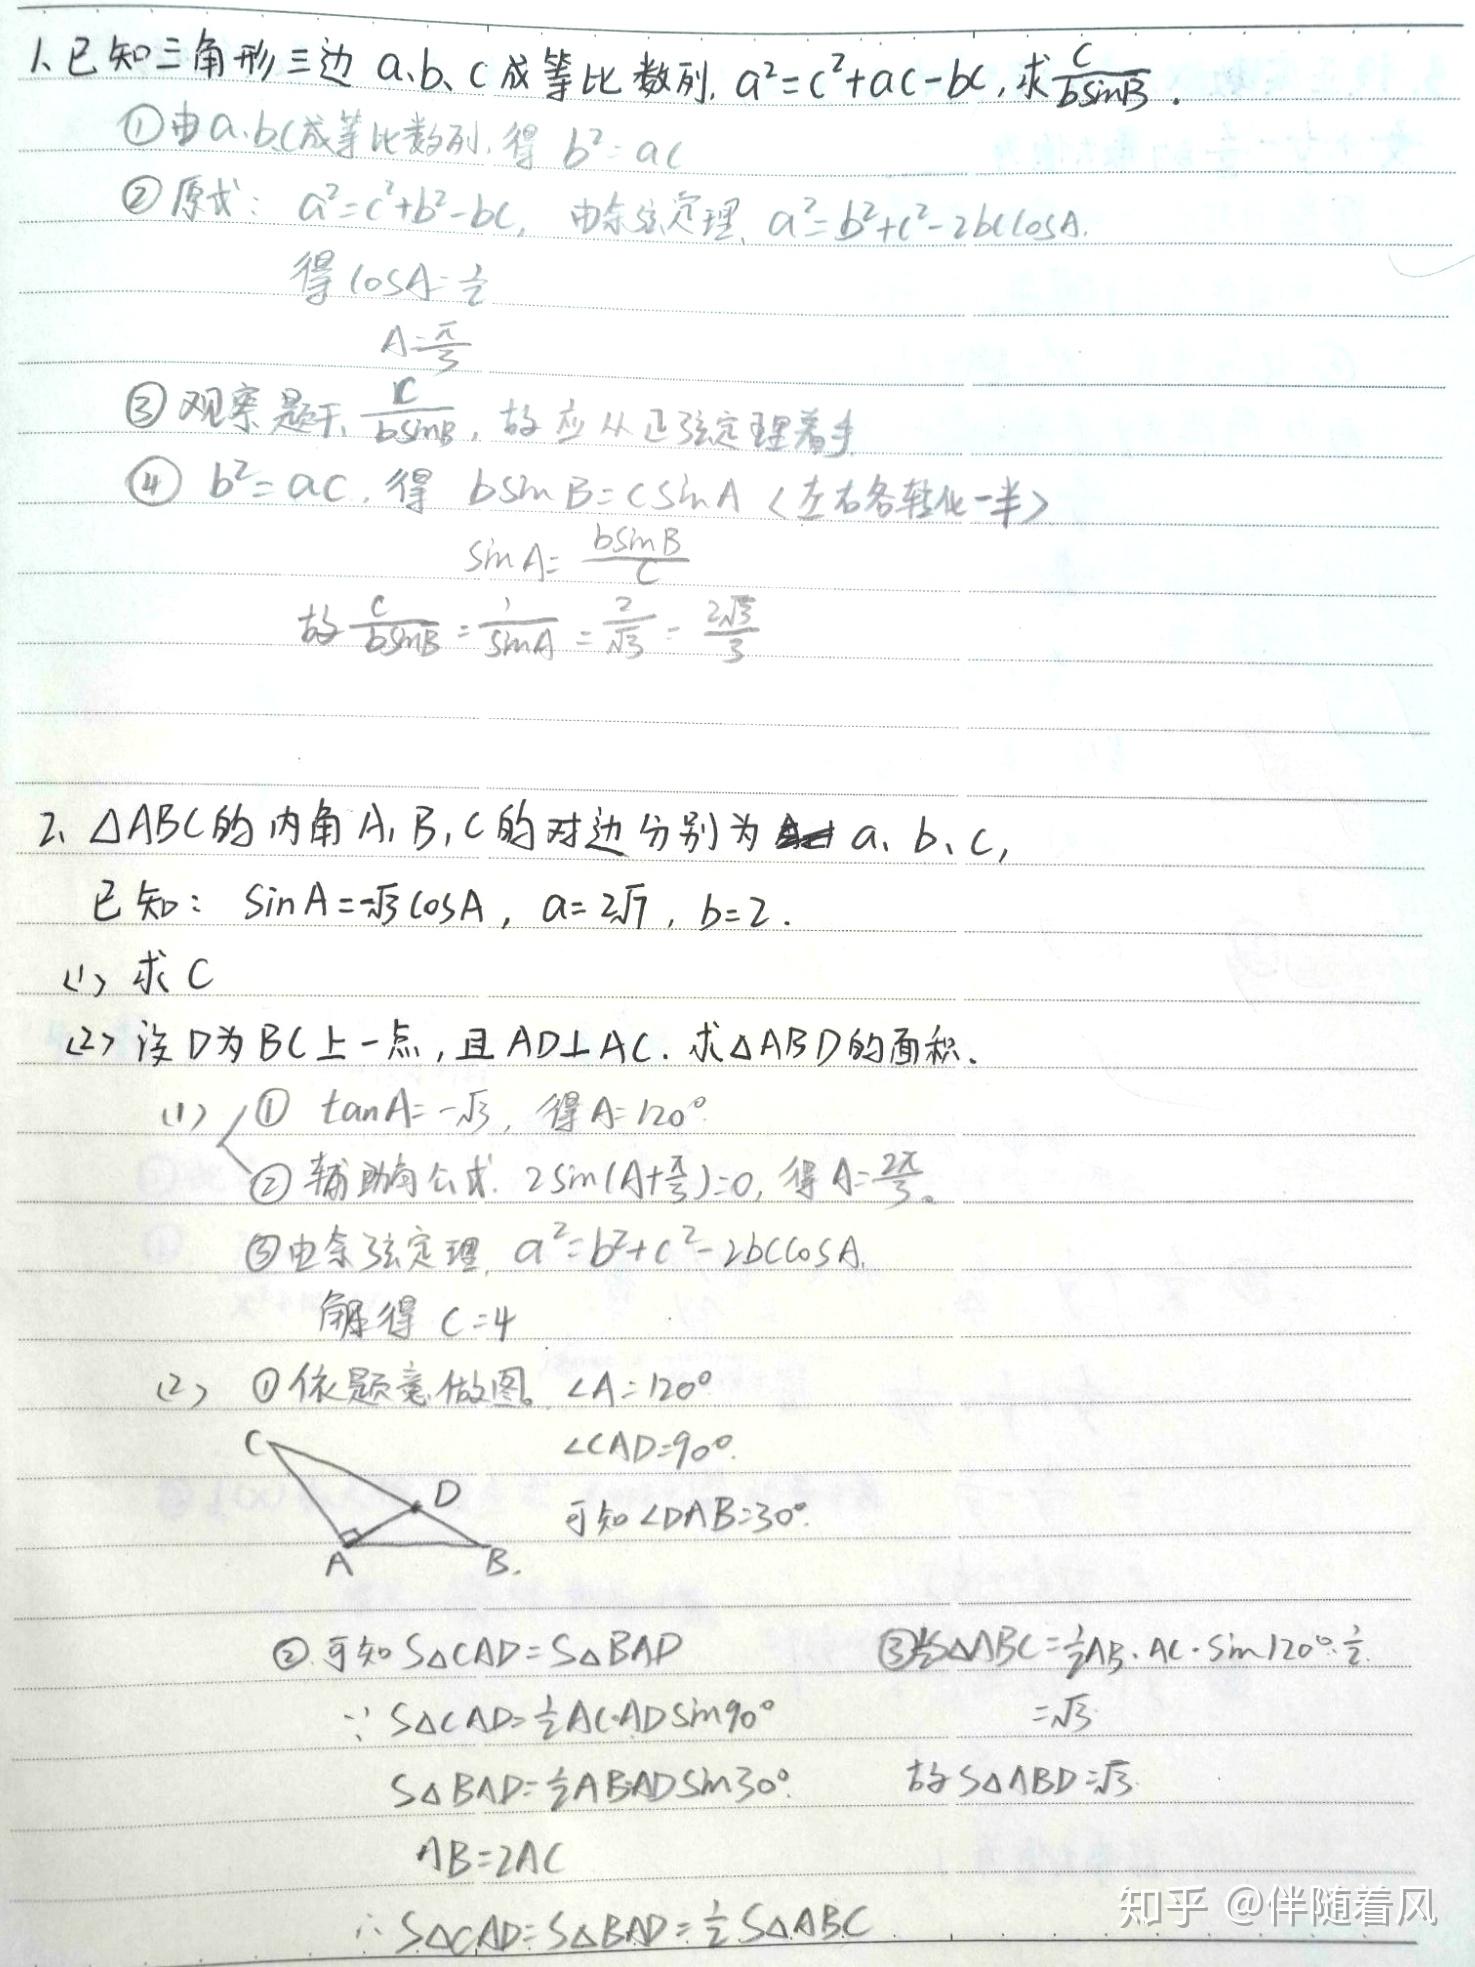 1、已知三角形三边 a、b、c 成等比数列, a²=c²+ac-bc, 求 c/bsinB .
①由a、b、c成等比数列, 得 b²=ac
②原式: a²=c²+b²-bc, 由余弦定理, a²=b²+c²-2bccosA.
得 cosA=1/2
A=π/3
③观察题干, c/bsinB, 故应从正弦定理着手
④ b²=ac, 得 bsinB=csinA <左右各转化一半>
sinA= bsinB/c
故 c/bsinB = 1/sinA = 2/√3 = 2√3/3
2、△ABC的内角A, B, C的对边分别为 a、b、c,
已知: sinA=-√3cosA, a=2√7, b=2.
<1> 求 C
<2> 设D为BC上一点, 且AD⊥AC. 求△ABD的面积.
<1> ① tanA=-√3, 得A=120°
② 辅助角公式. 2sin(A+π/3)=0, 得A=2π/3。
③由余弦定理, a²=b²+c²-2bccosA.
解得 c=4
<2> ①依题意做图。 ∠A=120°
C
∠CAD=90°.
D
可知∠DAB=30°.
A B.
②可知S△CAD=S△BAD
∵ S△CAD=1/2AC·ADsin90°
S△BAD=1/2AB·ADsin30°.
AB=2AC
∴ S△CAD=S△BAD=1/2S△ABC
③1/2S△ABC=1/2AB·AC·sin120°·1/2.
=√3
故S△ABD=√3.
知乎 @伴随着风